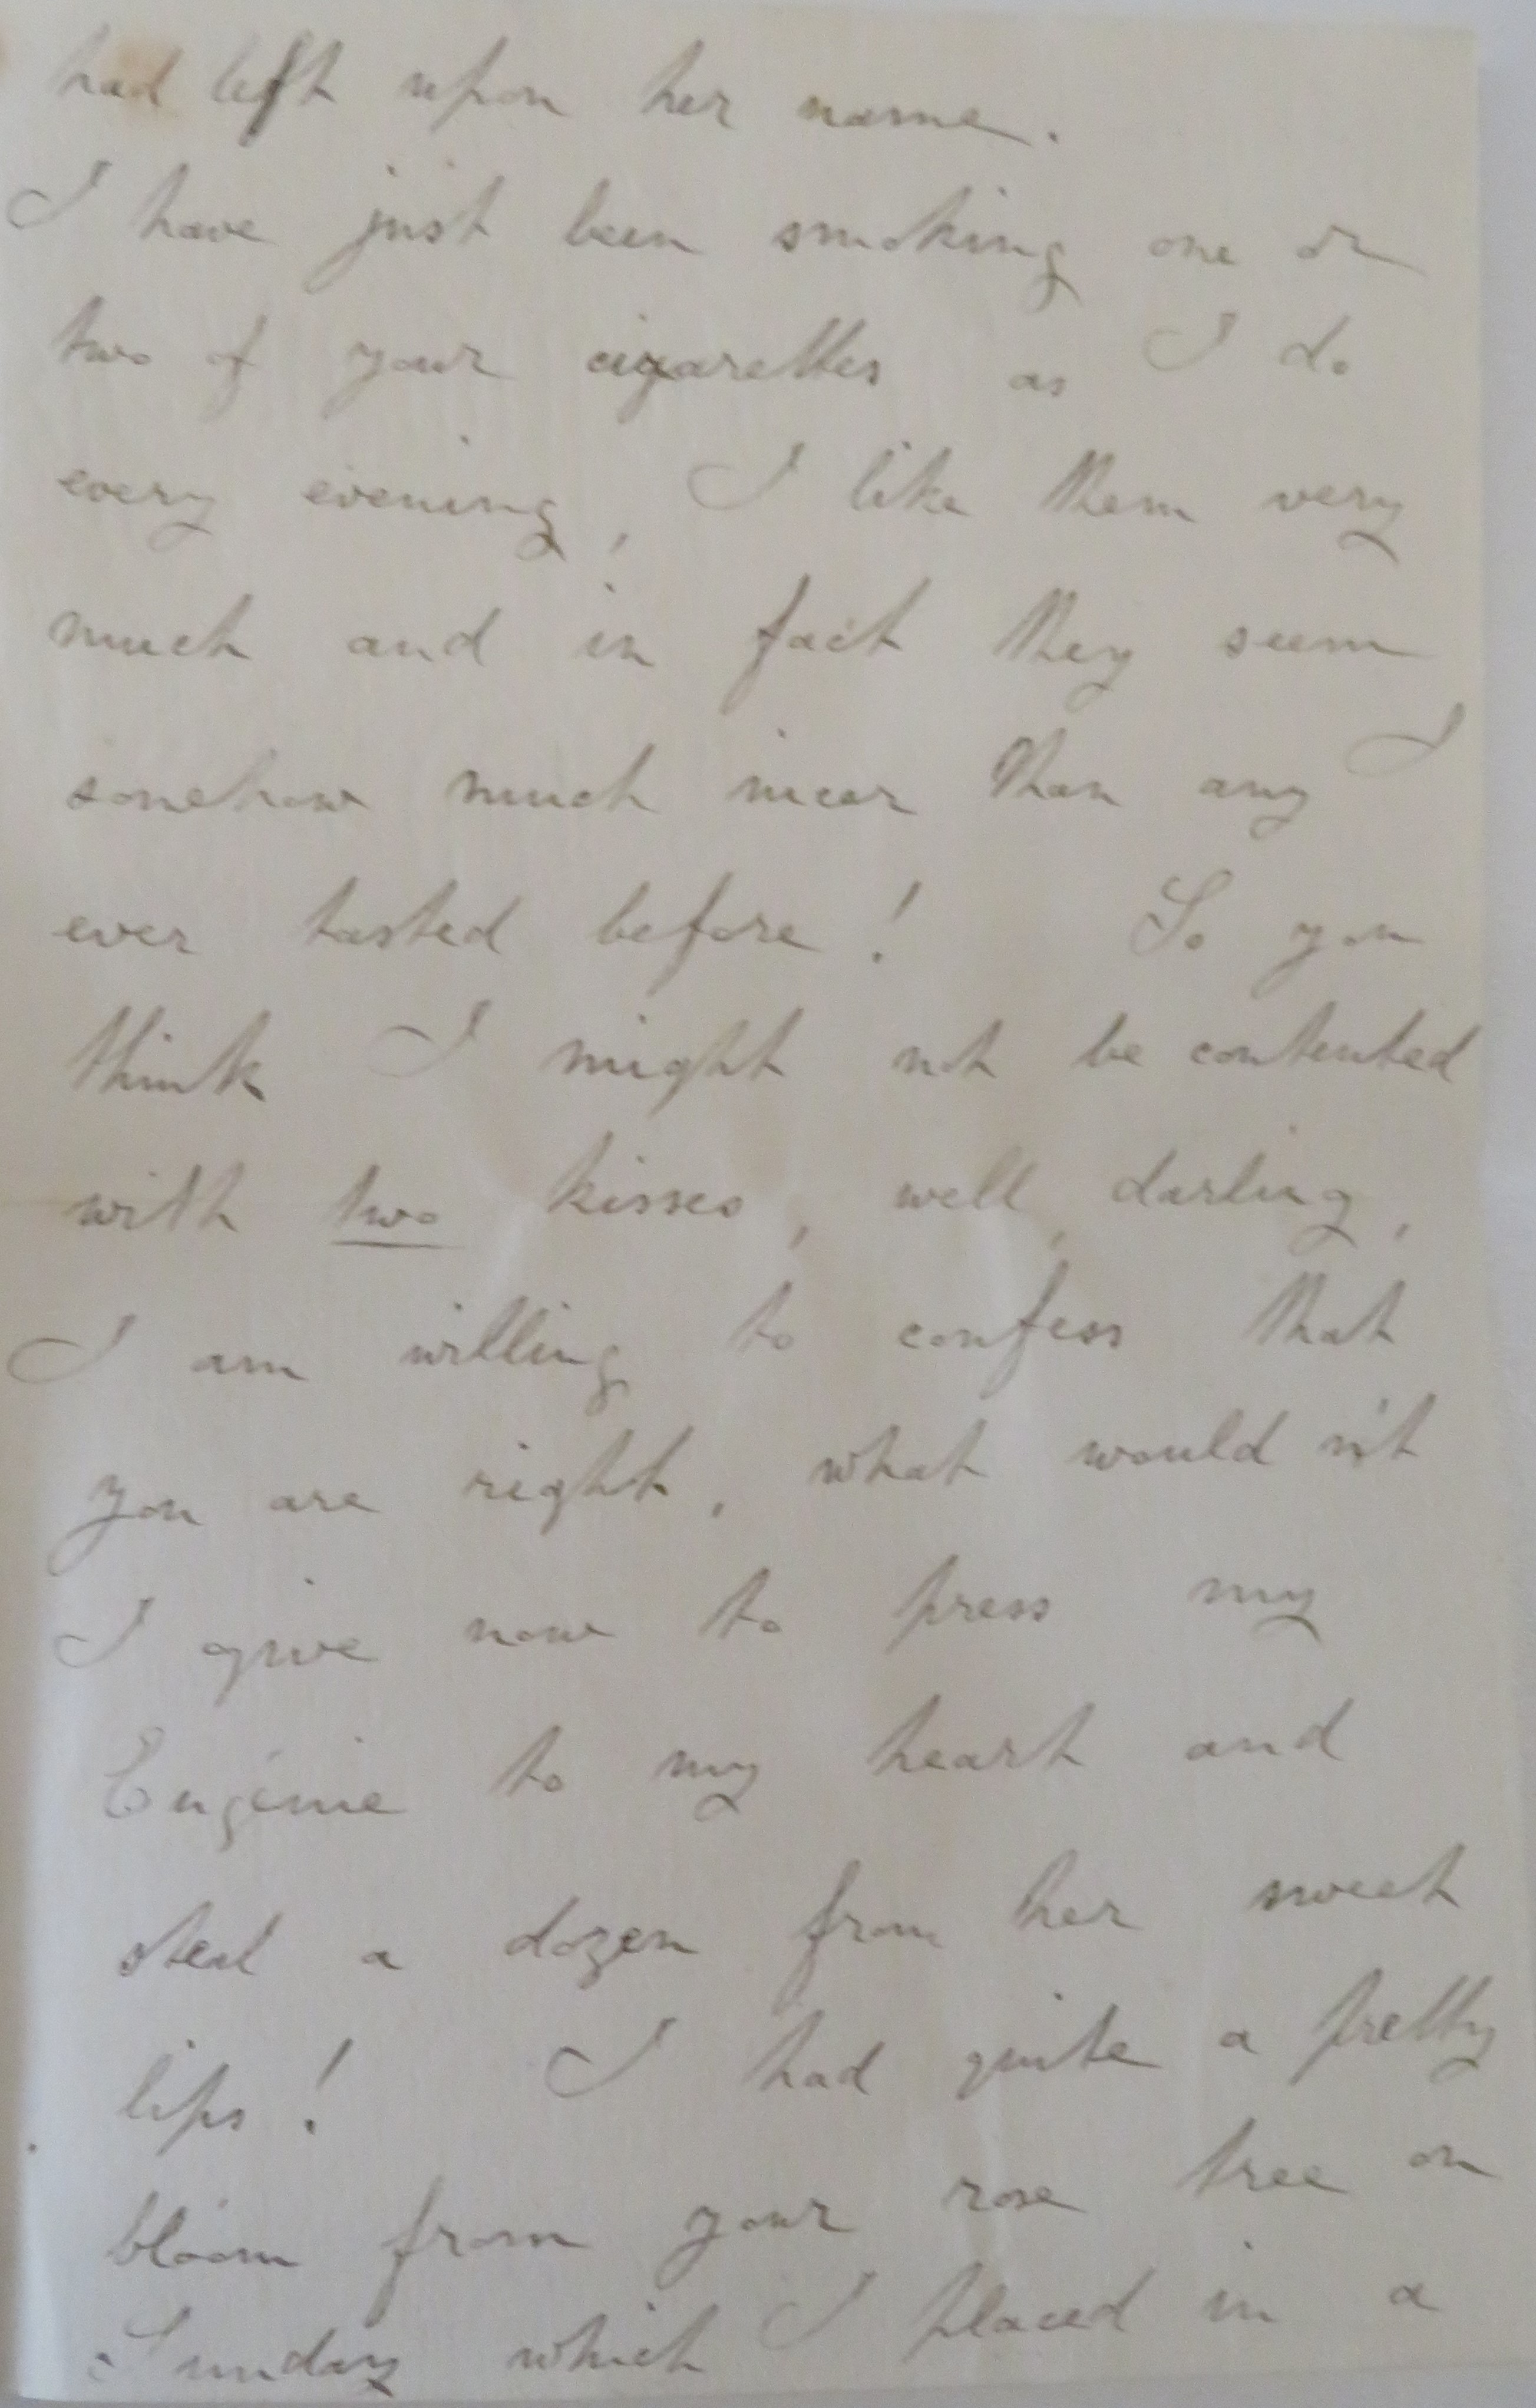 had left upon her name.
I have just been smoking one or
two of your cigarettes as I do
every evening, I like them very
much and in fact they seem
somehow much nicer than any I
ever tasted before! So you
think I might not be contented
with two kisses, well, darling,
I am willing to confess that
you are right, what would n't
I give now to press my
Eugénie to my heart and
steal a dozen from her sweet
lips! I had quite a pretty
bloom from your rose tree on
Sunday which I placed in a